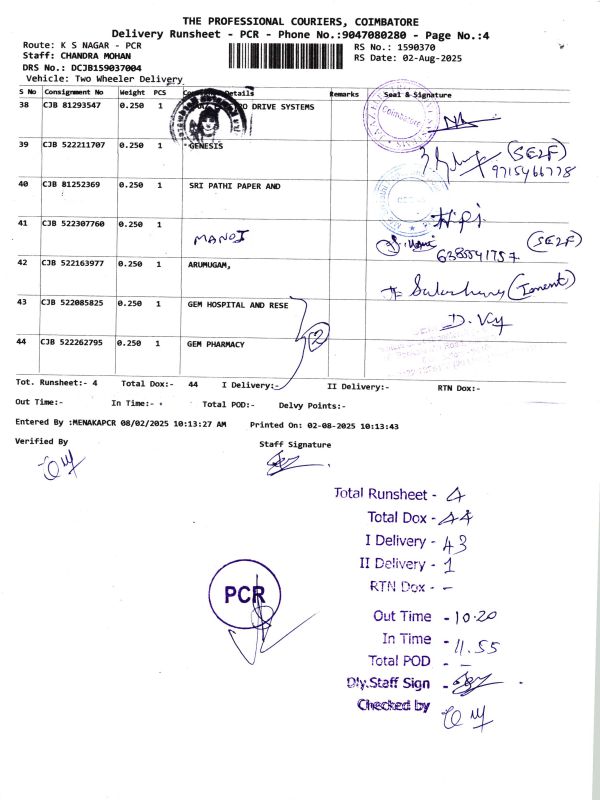 THE PROFESSIONAL COURIERS, COIMBATORE
Delivery Runsheet - PCR - Phone No.:9047080280 - Page No.:4
Route: K S NAGAR - PCR
RS No.: 1590370
Staff: CHANDRA MOHAN
RS Date: 02-Aug-2025
DRS No.: DCJB159037004
Vehicle: Two Wheeler Delivery
S No Consignment No Weight PCS Details Remarks Seal & Signature
38 CJB 81293547 0.250 1 DRIVE SYSTEMS
Coimbatore
39 CJB 522211707 0.250 1 GENESIS
(SELF)
9715466778
40 CJB 81252369 0.250 1 SRI PATHI PAPER AND
41 CJB 522307760 0.250 1 MANOJ
(SELF)
42 CJB 522163977 0.250 1 ARUMUGAM,
43 CJB 522085825 0.250 1 GEM HOSPITAL AND RESE
2
44 CJB 522262795 0.250 1 GEM PHARMACY
Tot. Runsheet:- 4 Total Dox:- 44 I Delivery:- II Delivery:- RTN Dox:-
Out Time:- In Time:- Total POD:- Delvy Points:-
Entered By :MENAKAPCR 08/02/2025 10:13:27 AM Printed On: 02-08-2025 10:13:43
Verified By Staff Signature
Total Runsheet - 4
Total Dox - 44
I Delivery - 43
II Delivery - 1
RTN Dox - -
PCR
Out Time - 10.20
In Time - 11.55
Total POD - -
Dly.Staff Sign -
Checked by